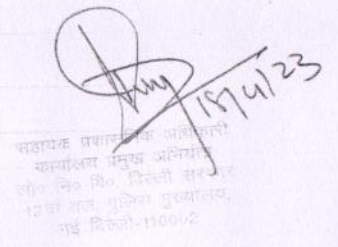 18/4/23
सहायक प्रशासनिक अधिकारी
कार्यालय प्रमुख अभियंता
लो० नि० वि० दिल्ली सरकार
12वां तल, पुलिस मुख्यालय,
नई दिल्ली-110002